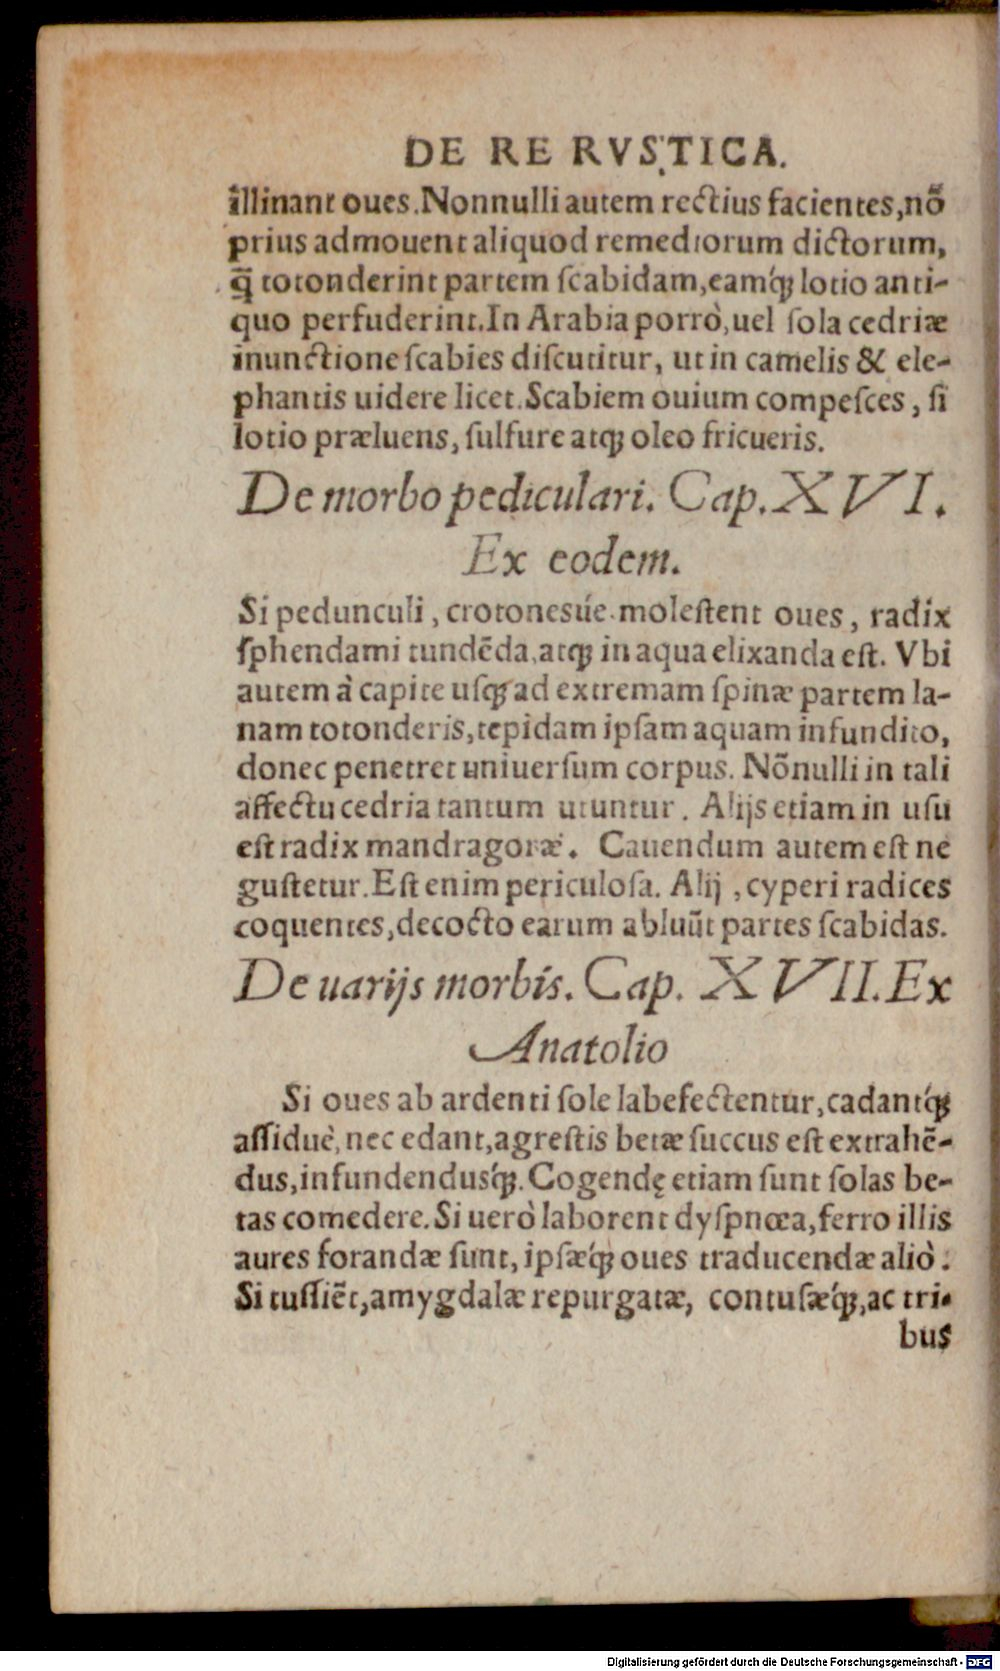 DE RE RVSTICA.
illinant oues. Nonnulli autem rectius facientes, nõ
prius admouent aliquod remediorum dictorum,
q̃ totonderint partem scabidam, eamq́ꝫ lotio anti-
quo perfuderint. In Arabia porrò, uel sola cedriæ
inunctione scabies discutitur, ut in camelis & ele-
phantis uidere licet. Scabiem ouium compesces, si
lotio præluens, sulfure atqꝫ oleo fricueris.
De morbo pediculari. Cap. XVI.
Ex eodem.
Si pedunculi, crotonesúe molestent oues, radix
sphendami tundẽda, atqꝫ in aqua elixanda est. Vbi
autem à capite usqꝫ ad extremam spinæ partem la-
nam totonderis, tepidam ipsam aquam infundito,
donec penetret uniuersum corpus. Nõnulli in tali
affectu cedria tantum utuntur. Alijs etiam in usu
est radix mandragoræ. Cauendum autem est ne
gustetur. Est enim periculosa. Alij, cyperi radices
coquentes, decocto earum abluũt partes scabidas.
De uarijs morbis. Cap. XVII. Ex
Anatolio
Si oues ab ardenti sole labefectentur, cadantq́ꝫ
assiduè, nec edant, agrestis betæ succus est extrahẽ-
dus, infundendusq́ꝫ. Cogendę etiam sunt solas be-
tas comedere. Si uerò laborent dyspnœa, ferro illis
aures forandæ sunt, ipsæq́ꝫ oues traducendæ aliò.
Si tussiẽt, amygdalæ repurgatæ, contusæq́ꝫ, ac tri-
bus
Digitalisierung gefördert durch die Deutsche Forschungsgemeinschaft - DFG